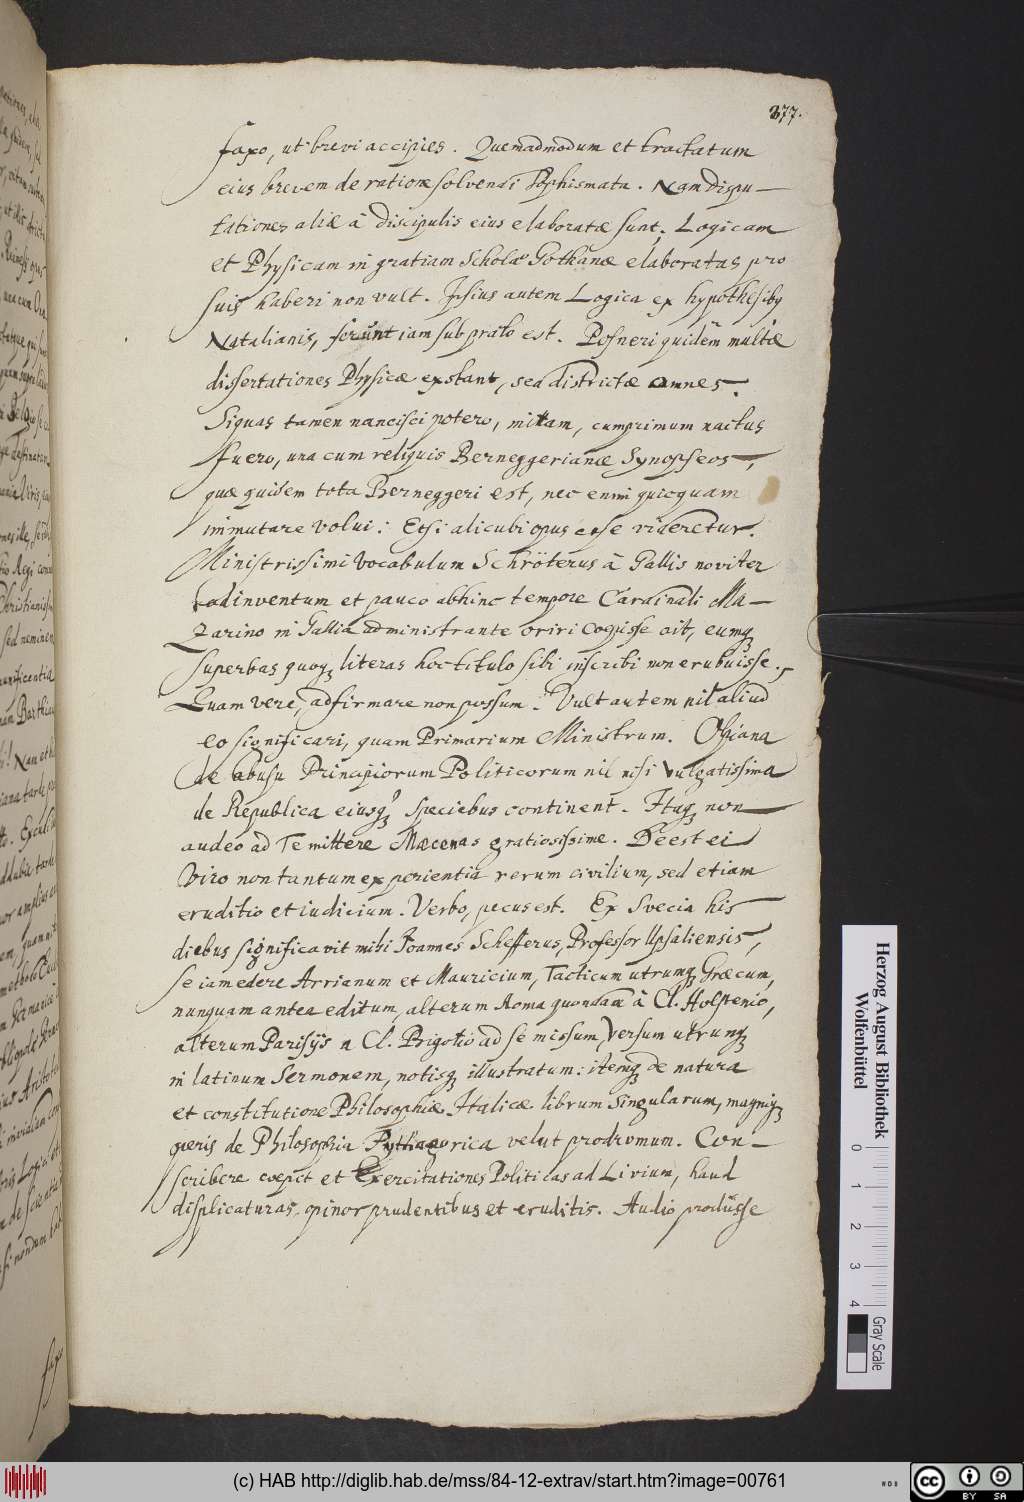 377.
faxo, ut brevi accipies. Quemadmodum et tractatum
eius brevem de ratione solvendi Sophismata. Nam dispu-
tationes aliæ à discipulis eius elaboratæ sunt. Logicam
et Physicam in gratiam Scholæ Gothanæ elaboratas pro
suis haberi non vult. Ipsius autem Logica ex hypothesiby
Natalianis, ferunt iam sub prælo est. Posneri quidem multæ
dissertationes Physicæ exstant, sed districtæ omnes.
Siquas tamen nancisci potero, mittam, cumprimum nactus
fuero, una cum reliquis Berneggerianæ Synopseos,
quæ quidem tota Berneggeri est, nec enim quicquam
immutare volui: Etsi alicubi opus esse videretur.
Ministrissimi vocabulum Schröterus à Gallis noviter
adinventum et pauco abhinc tempore Cardinali Ma-
zarino in Gallia administrante oriri coepisse ait, eumq3
superbas quoq3 literas hoc titulo sibi inscribi non erubuisse.
Quam vere, adfirmare non possum. Vult autem nil aliud
eo significari, quam Primarium Ministrum.
de abusu Principiorum Politicorum nil nisi vulgatissima
de Republica eiusq3 speciebus continent. Itaq3 non
audeo ad Te mittere Mæcenas gratiosissime. Deest ei
Viro non tantum experientia rerum civilium, sed etiam
eruditio et iudicium. Verbo, pecus est. Ex Svecia his
diebus significavit mihi Joannes Schefferus, Professor Upsaliensis,
se iam edere Arrianum et Mauricium, Tacticum utrumq3 Græcum,
nunquam antea editum, alterum Roma quondam à Cl. Holstenio,
alterum Parisijs a Cl. Bigotio ad se missum, versum utrumq3
in latinum sermonem, notisq3 illustratum: itemq3 de natura
et constitutione Philosophiæ Italicæ librum singularum, magniq3
operis de Philosophia Pythagorica velut prodromum. Con-
scribere coepit et Exercitationes Politicas ad Livium, haud
displicaturas opinor prudentibus et eruditis. Audio prodiisse
faxo
Herzog August Bibliothek
Wolfenbüttel
0 1 2 3 4
Gray Scale
(c) HAB http://diglib.hab.de/mss/84-12-extrav/start.htm?image=00761
cc BY SA